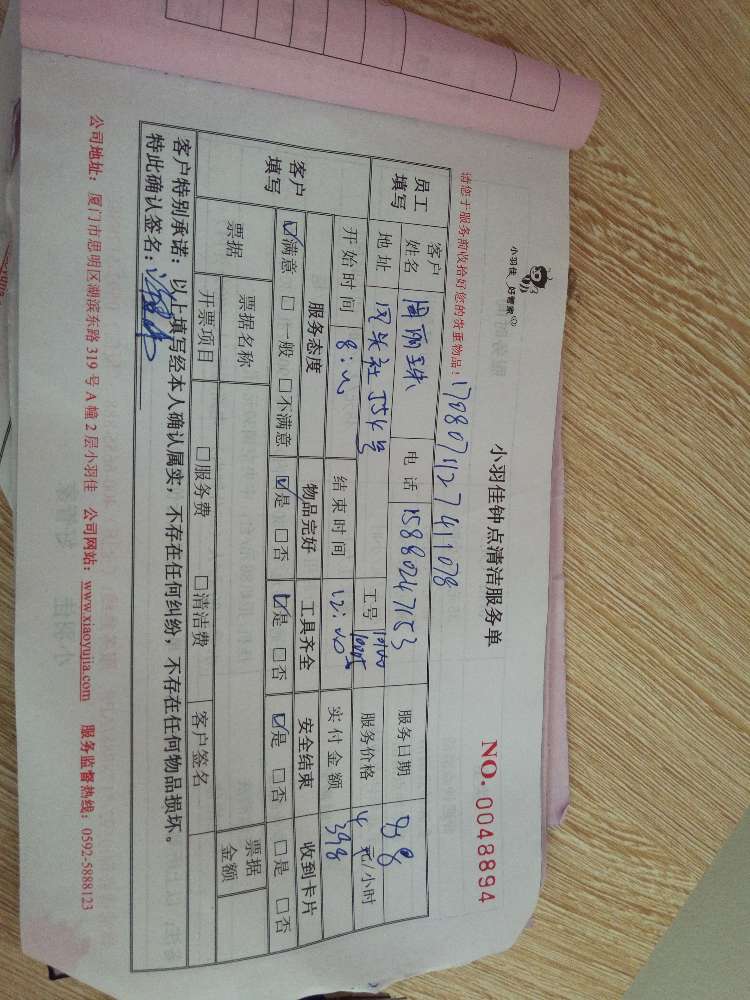 小羽佳 好管家
小羽佳钟点清洁服务单
NO. 0048894
请您于服务前收拾好您的贵重物品!
员工填写 客户姓名 电话 15880247153 服务日期 8.8
地址 工号 服务价格 4 元/小时
客户填写 开始时间 8:00 结束时间 12:00 实付金额 398
服务态度 物品完好 工具齐全 安全结束 收到卡片
☑满意 □一般 □不满意 ☑是 □否 ☑是 □否 ☑是 □否 □是 □否
票据 票据名称 票据金额
开票项目 □服务费 □清洁费 客户签名
客户特别承诺:以上填写经本人确认属实,不存在任何纠纷,不存在任何物品损坏。
特此确认签名:
公司地址:厦门市思明区湖滨东路 319 号 A 幢 2 层小羽佳 公司网站:www.xiaoyujia.com 服务监督热线:0592-5888123